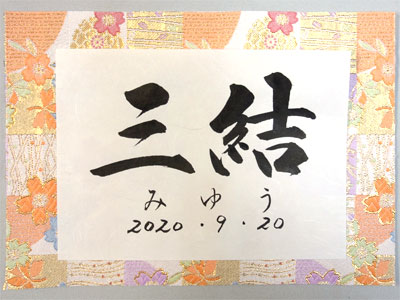 三結
みゆう
2020・9・20